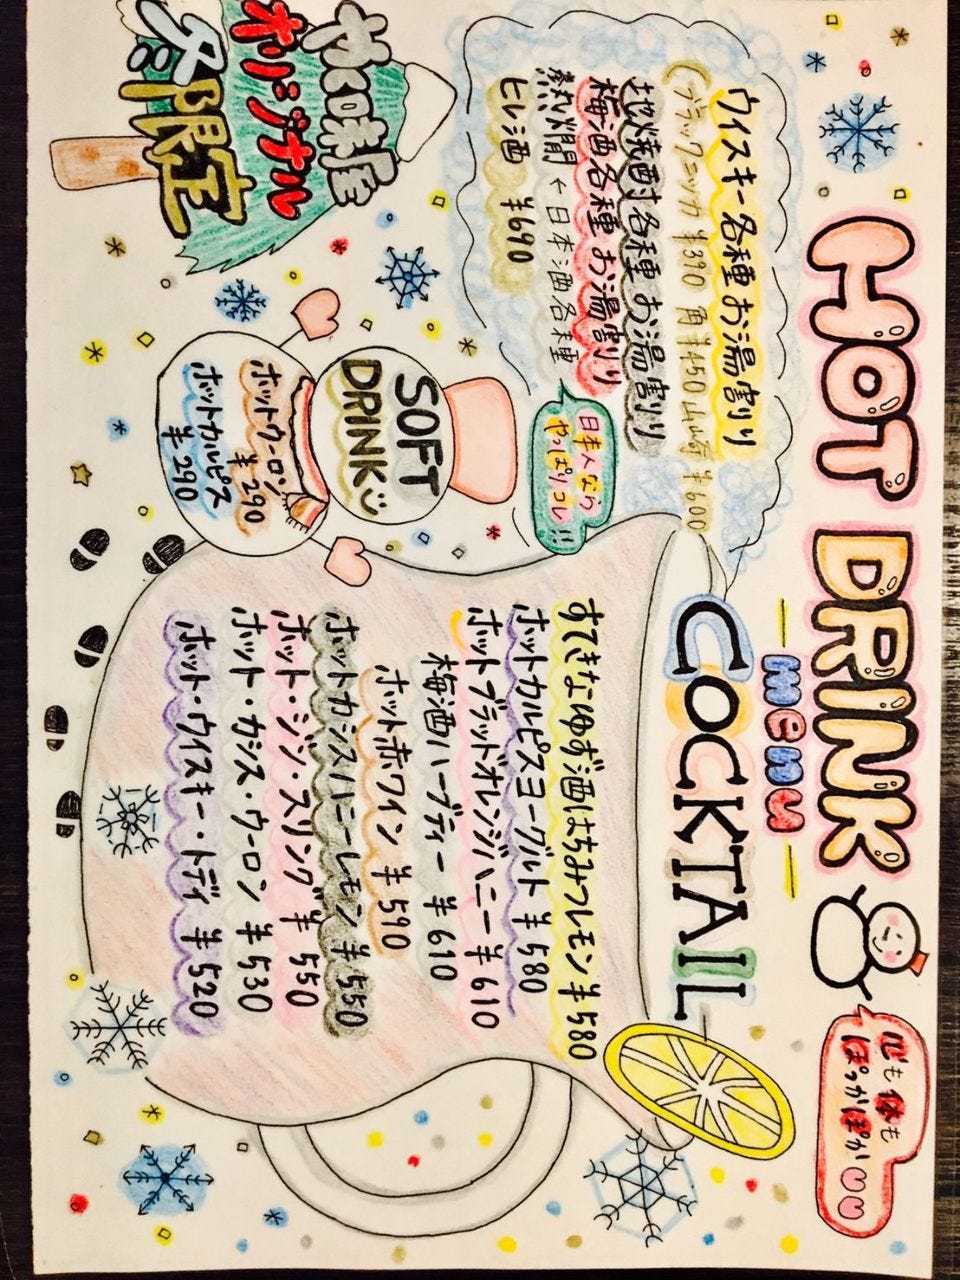 HOT DRINK
menu
心も体も
ぽっかぽか
ウイスキー各種お湯割り
(ブラックニッカ ¥390 角¥450 山崎¥600
地焼酎各種お湯割り
梅酒各種お湯割り
熱燗 ← 日本酒各種
ヒレ酒 ¥690
日本人なら
やっぱりコレ!!
COCKTAIL
すてきなゆず酒はちみつレモン ¥580
ホットカルピスヨーグルト ¥580
ホットブラッドオレンジハニー ¥610
梅酒ハーブティー ¥610
ホット赤ワイン ¥590
ホットカシスハニーレモン ¥550
ホット・ジン・スリング ¥550
ホット・カシス・ウーロン ¥530
ホット・ウイスキー・トディ ¥520
SOFT
DRINK
ホットウーロン
¥290
ホットカルピス
¥290
オリジナル
冬限定